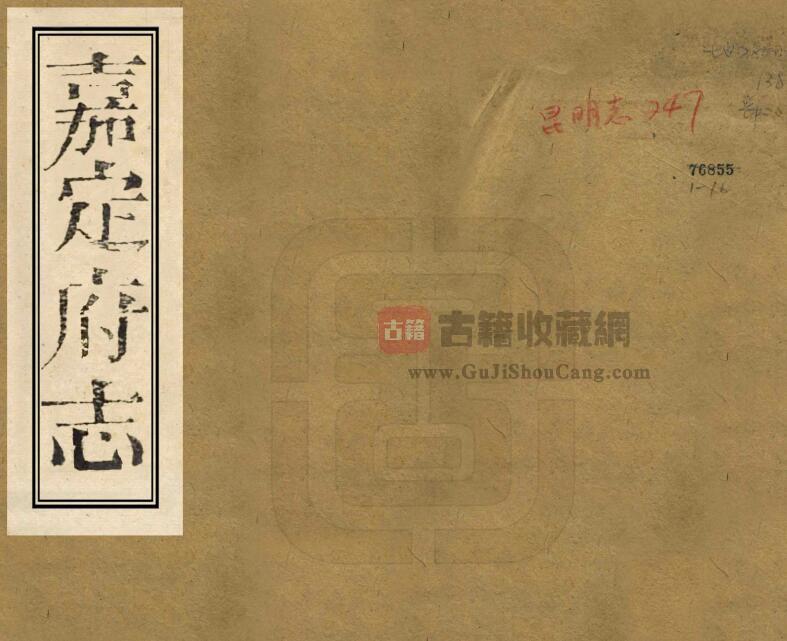 嘉定府志
昆明志 247
138
76855
1-16
古籍 古籍收藏網
www.GuJiShouCang.com